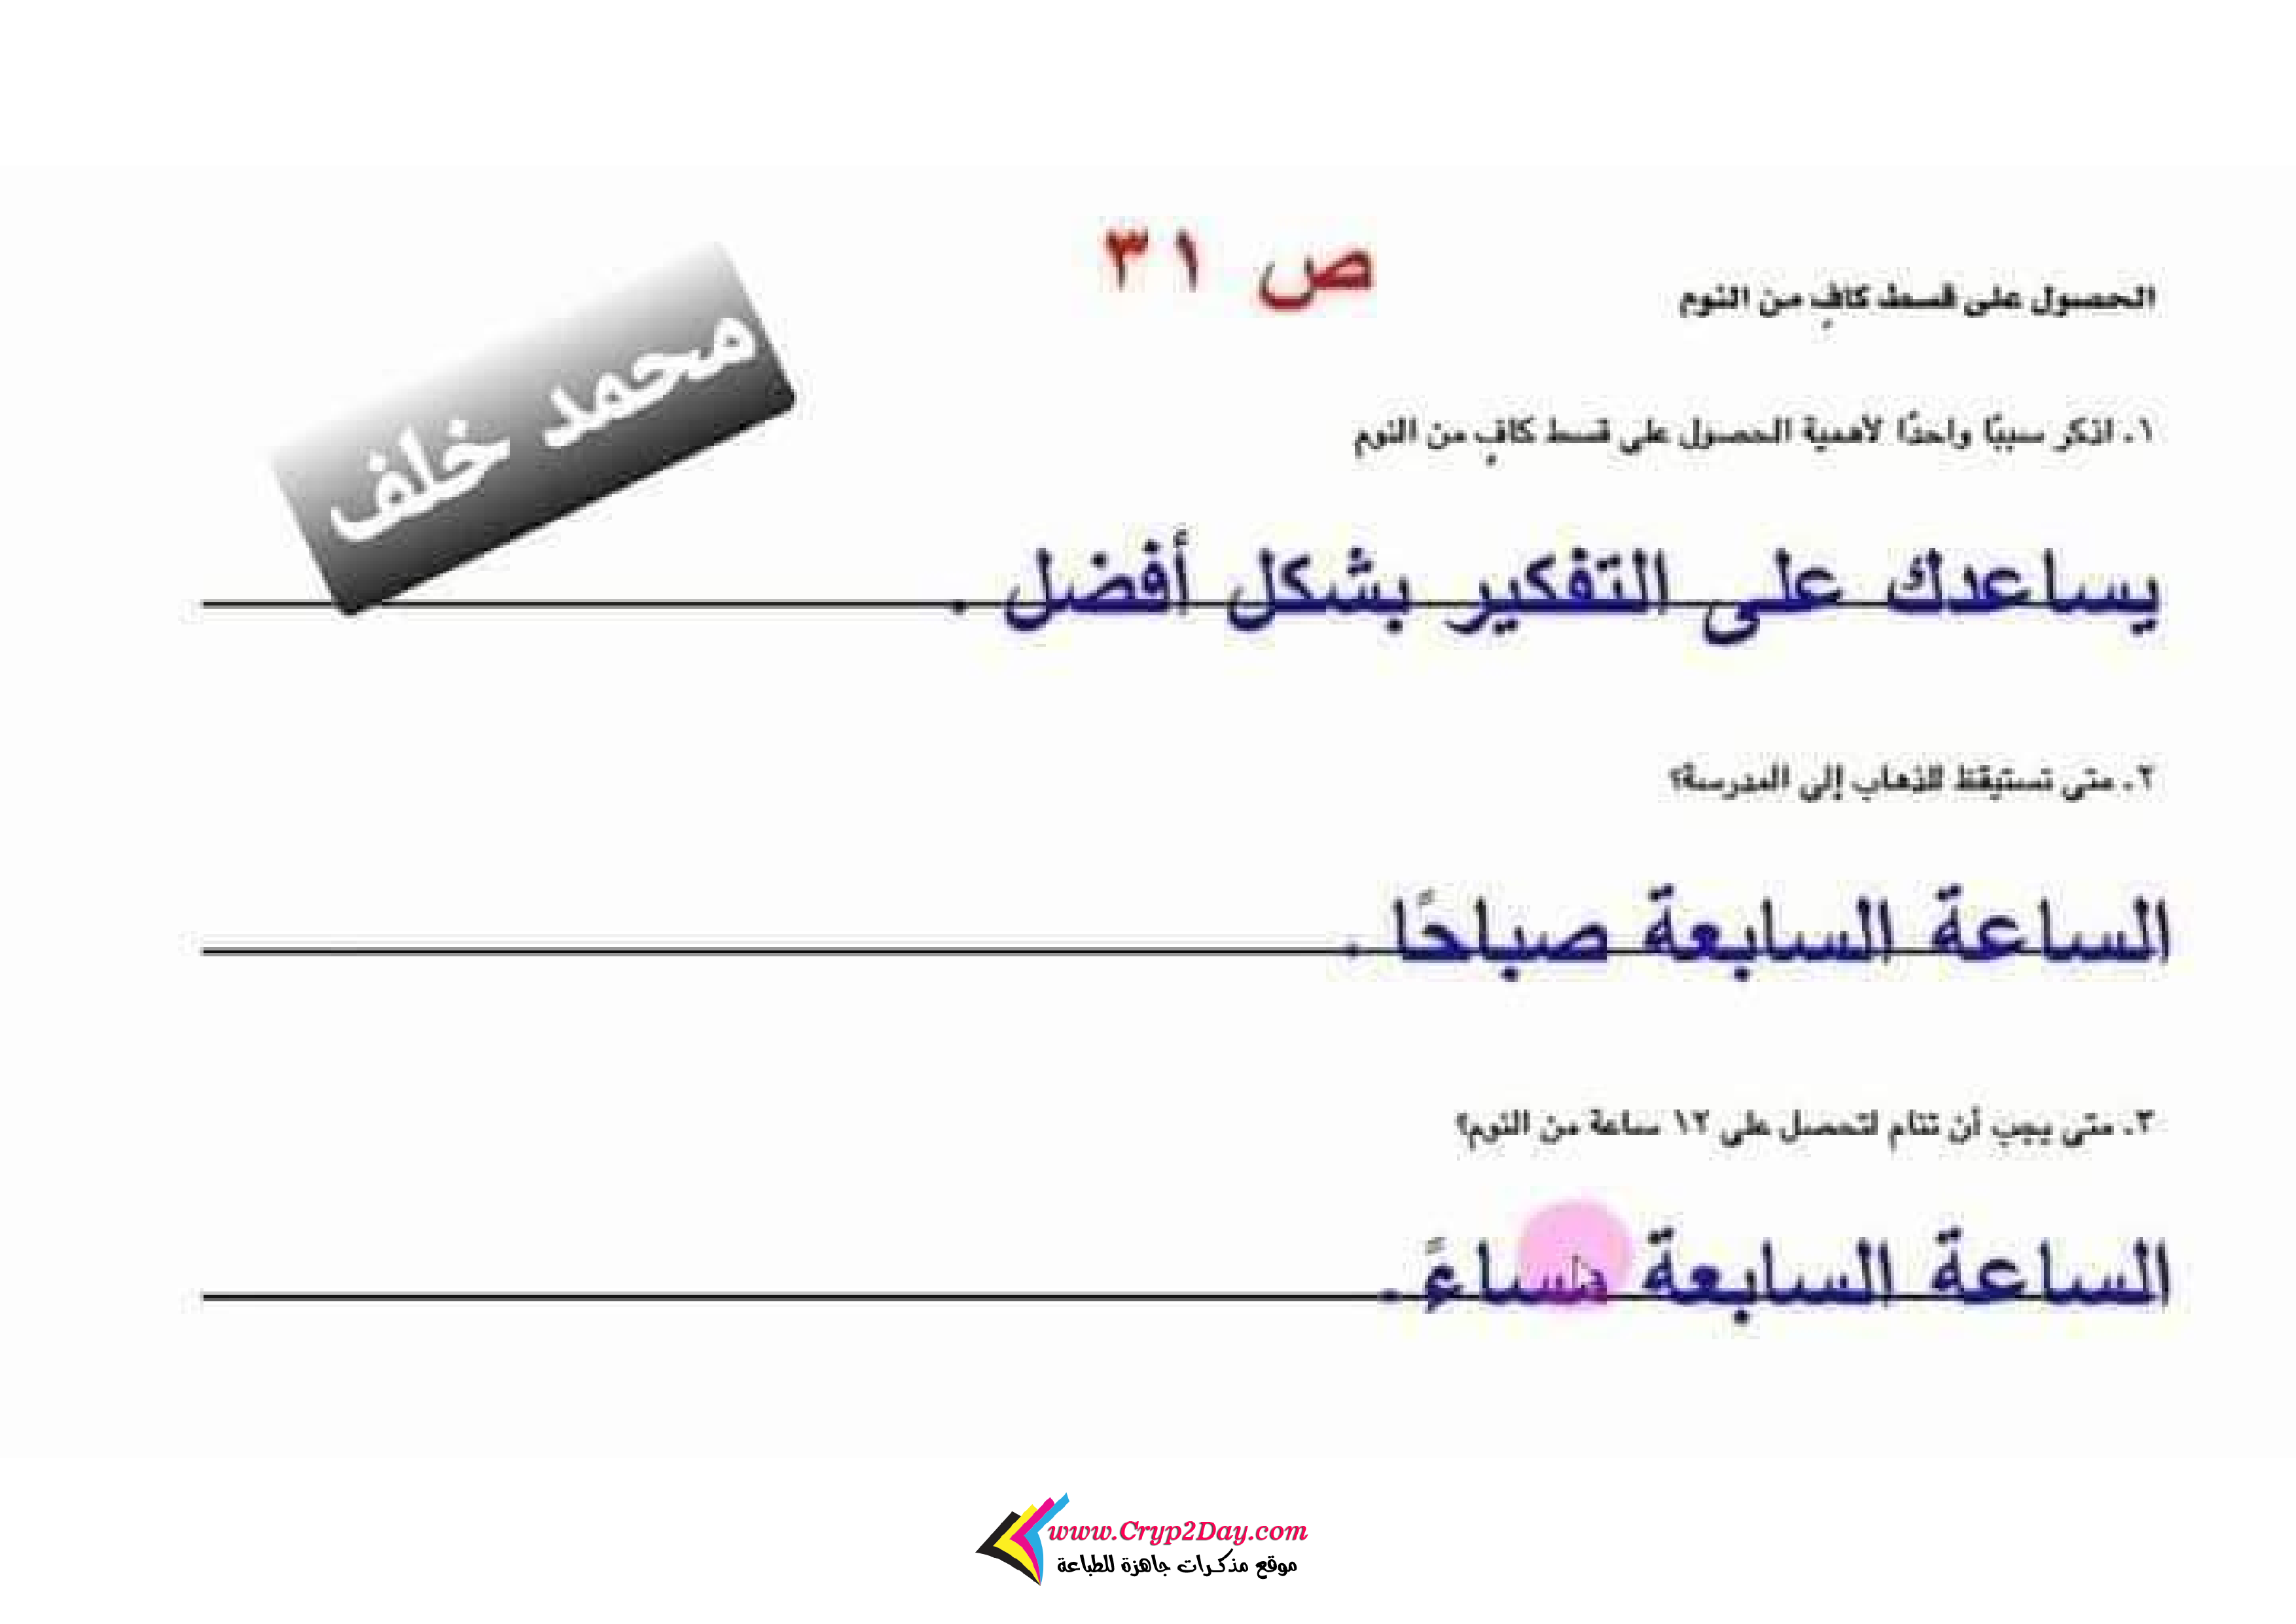 ص ٣١
الحصول على قسط كافٍ من النوم
محمد خلف
١. اذكر سببًا واحدًا لأهمية الحصول على قسط كافٍ من النوم
يساعدك على التفكير بشكل أفضل .
٢. متى تستيقظ للذهاب إلى المدرسة؟
الساعة السابعة صباحًا .
٣. متى يجب أن تنام لتحصل على ١٢ ساعة من النوم؟
الساعة السابعة مساءً .
www.Cryp2Day.com
موقع مذكرات جاهزة للطباعة